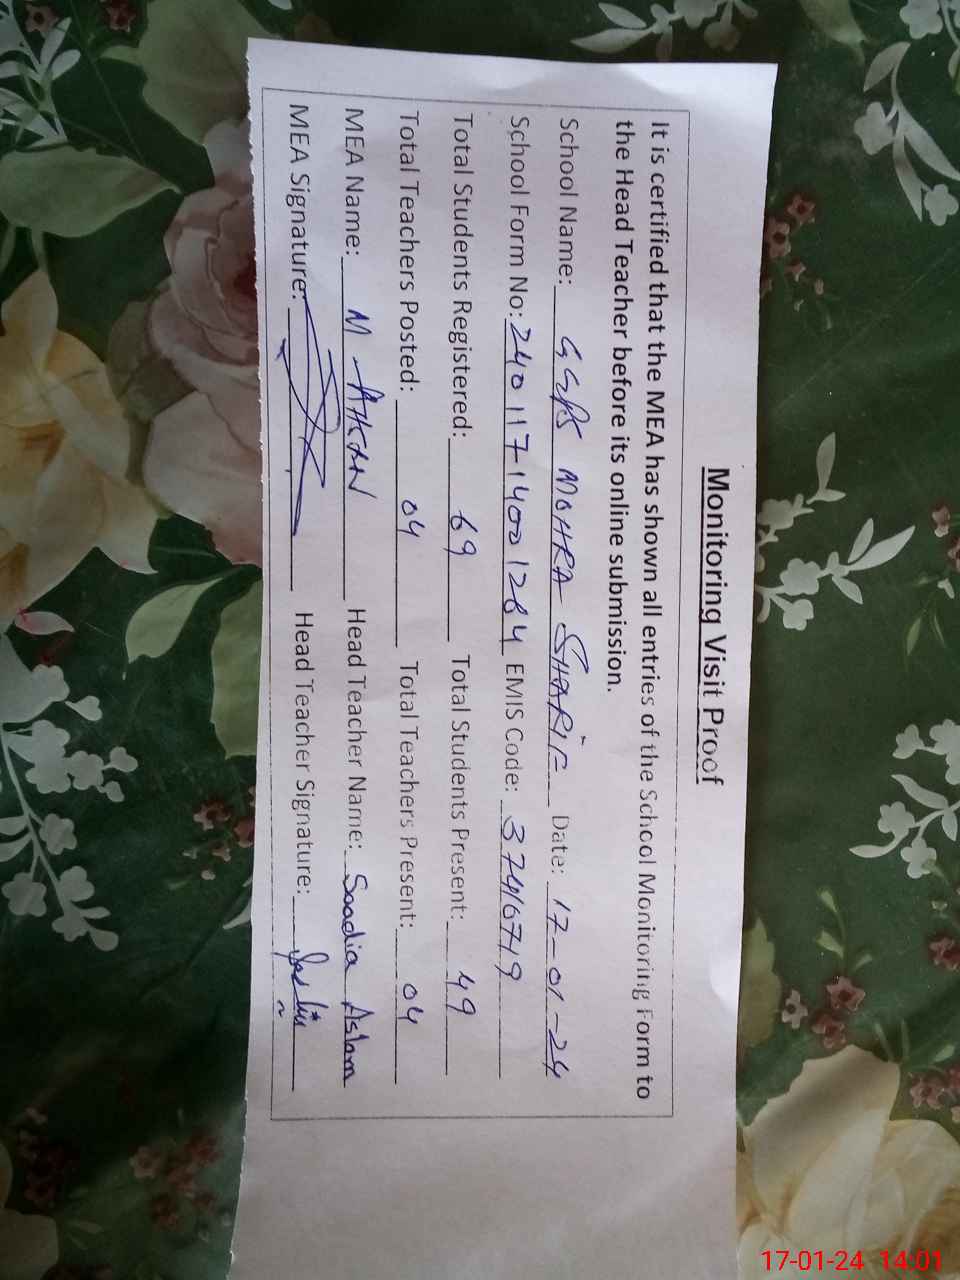 Monitoring Visit Proof
It is certified that the MEA has shown all entries of the School Monitoring Form to
the Head Teacher before its online submission.
School Name: GGPS MOHRA SHARIF Date: 17-01-24
School Form No: 24011714001284 EMIS Code: 37416719
Total Students Registered: 69 Total Students Present: 49
Total Teachers Posted: 04 Total Teachers Present: 04
MEA Name: M Head Teacher Name: Saadia Aslam
MEA Signature: Head Teacher Signature:
17-01-24 14:01